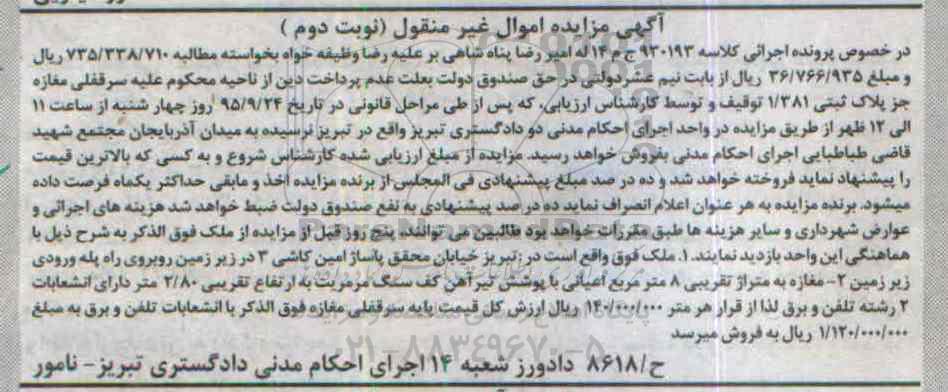 آگهی مزایده اموال غیر منقول (نوبت دوم )
در خصوص پرونده اجرائی کلاسه ۹۳۰۱۹۳ ج م ۱۴ له امیر رضا پناه شاهی بر علیه رضا وظیفه خواه بخواسته مطالبه ۷۳۵/۳۳۸/۷۱۰ ریال
و مبلغ ۳۶/۷۶۶/۹۳۵ ریال از بابت نیم عشر دولتی در حق صندوق دولت بعلت عدم پرداخت دین از ناحیه محکوم علیه سرقفلی مغازه
جز پلاک ثبتی ۱/۳۸۱ توقیف و توسط کارشناس ارزیابی، که پس از طی مراحل قانونی در تاریخ ۹۵/۹/۲۴ روز چهار شنبه از ساعت ۱۱
الی ۱۲ ظهر از طریق مزایده در واحد اجرای احکام مدنی دو دادگستری تبریز واقع در تبریز نرسیده به میدان آذربایجان مجتمع شهید
قاضی طباطبایی اجرای احکام مدنی بفروش خواهد رسید. مزایده از مبلغ ارزیابی شده کارشناس شروع و به کسی که بالاترین قیمت
را پیشنهاد نماید فروخته خواهد شد و ده در صد مبلغ پیشنهادی فی المجلس از برنده مزایده اخذ و مابقی حداکثر یکماه فرصت داده
میشود. برنده مزایده به هر عنوان اعلام انصراف نماید ده در صد پیشنهادی به نفع صندوق دولت ضبط خواهد شد هزینه های اجرائی و
عوارض شهرداری و سایر هزینه ها طبق مقررات خواهد بود طالبین می توانند پنج روز قبل از مزایده از ملک فوق الذکر به شرح ذیل با
هماهنگی این واحد بازدید نمایند. ۱. ملک فوق واقع است در: تبریز خیابان محقق پاساژ امین کاشی ۳ در زیر زمین روبروی راه پله ورودی
زیر زمین ۲- مغازه به متراژ تقریبی ۸ متر مربع اعیانی با پوشش تیر آهن کف سنگ مرمریت به ارتفاع تقریبی ۲/۸۰ متر دارای انشعابات
۲ رشته تلفن و برق لذا از قرار هر متر ۱۴۰/۰۰۰/۰۰۰ ریال ارزش کل قیمت پایه سرقفلی مغازه فوق الذکر با انشعابات تلفن و برق به مبلغ
۱/۱۲۰/۰۰۰/۰۰۰ ریال به فروش میرسد
ح/۸۶۱۸ دادورز شعبه ۱۴ اجرای احکام مدنی دادگستری تبریز- نامور
۰۲۱-۸۸۳۴۹۶۷۰-۵